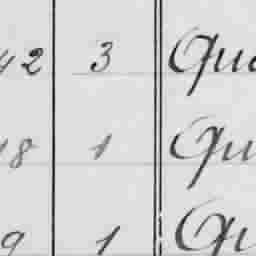 42 3 Qua
18 1 Qu
9 1 Qu